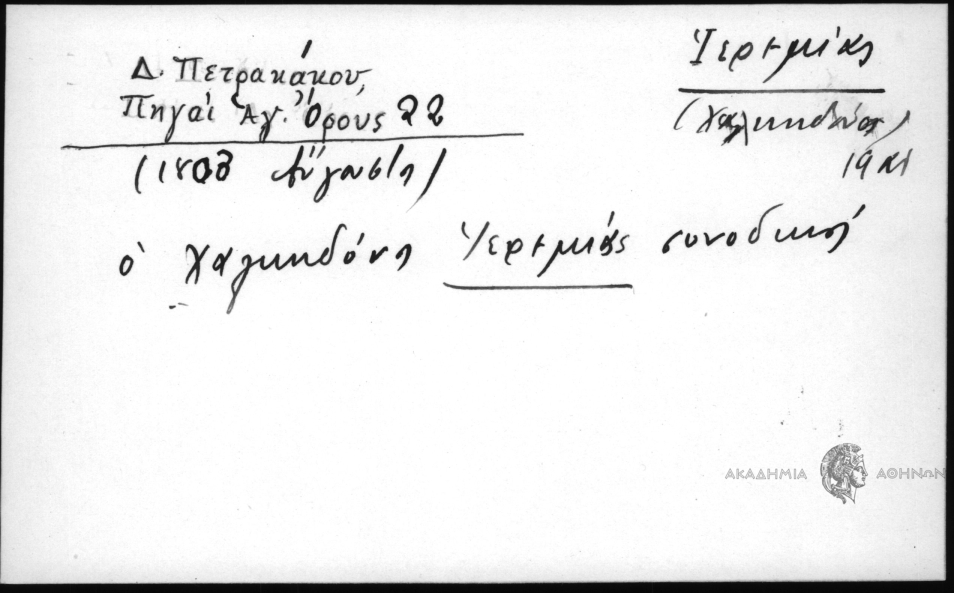 Δ. Πετρακάκου,
Πηγαὶ Ἁγ. Ὄρους 22
(1808 Αὔγουστος)
Ἱερεμίας
(Χαλκηδόνος)
ὁ Χαλκηδόνος Ἱερεμίας συνοδικός
ΑΚΑΔΗΜΙΑ ΑΘΗΝΩΝ